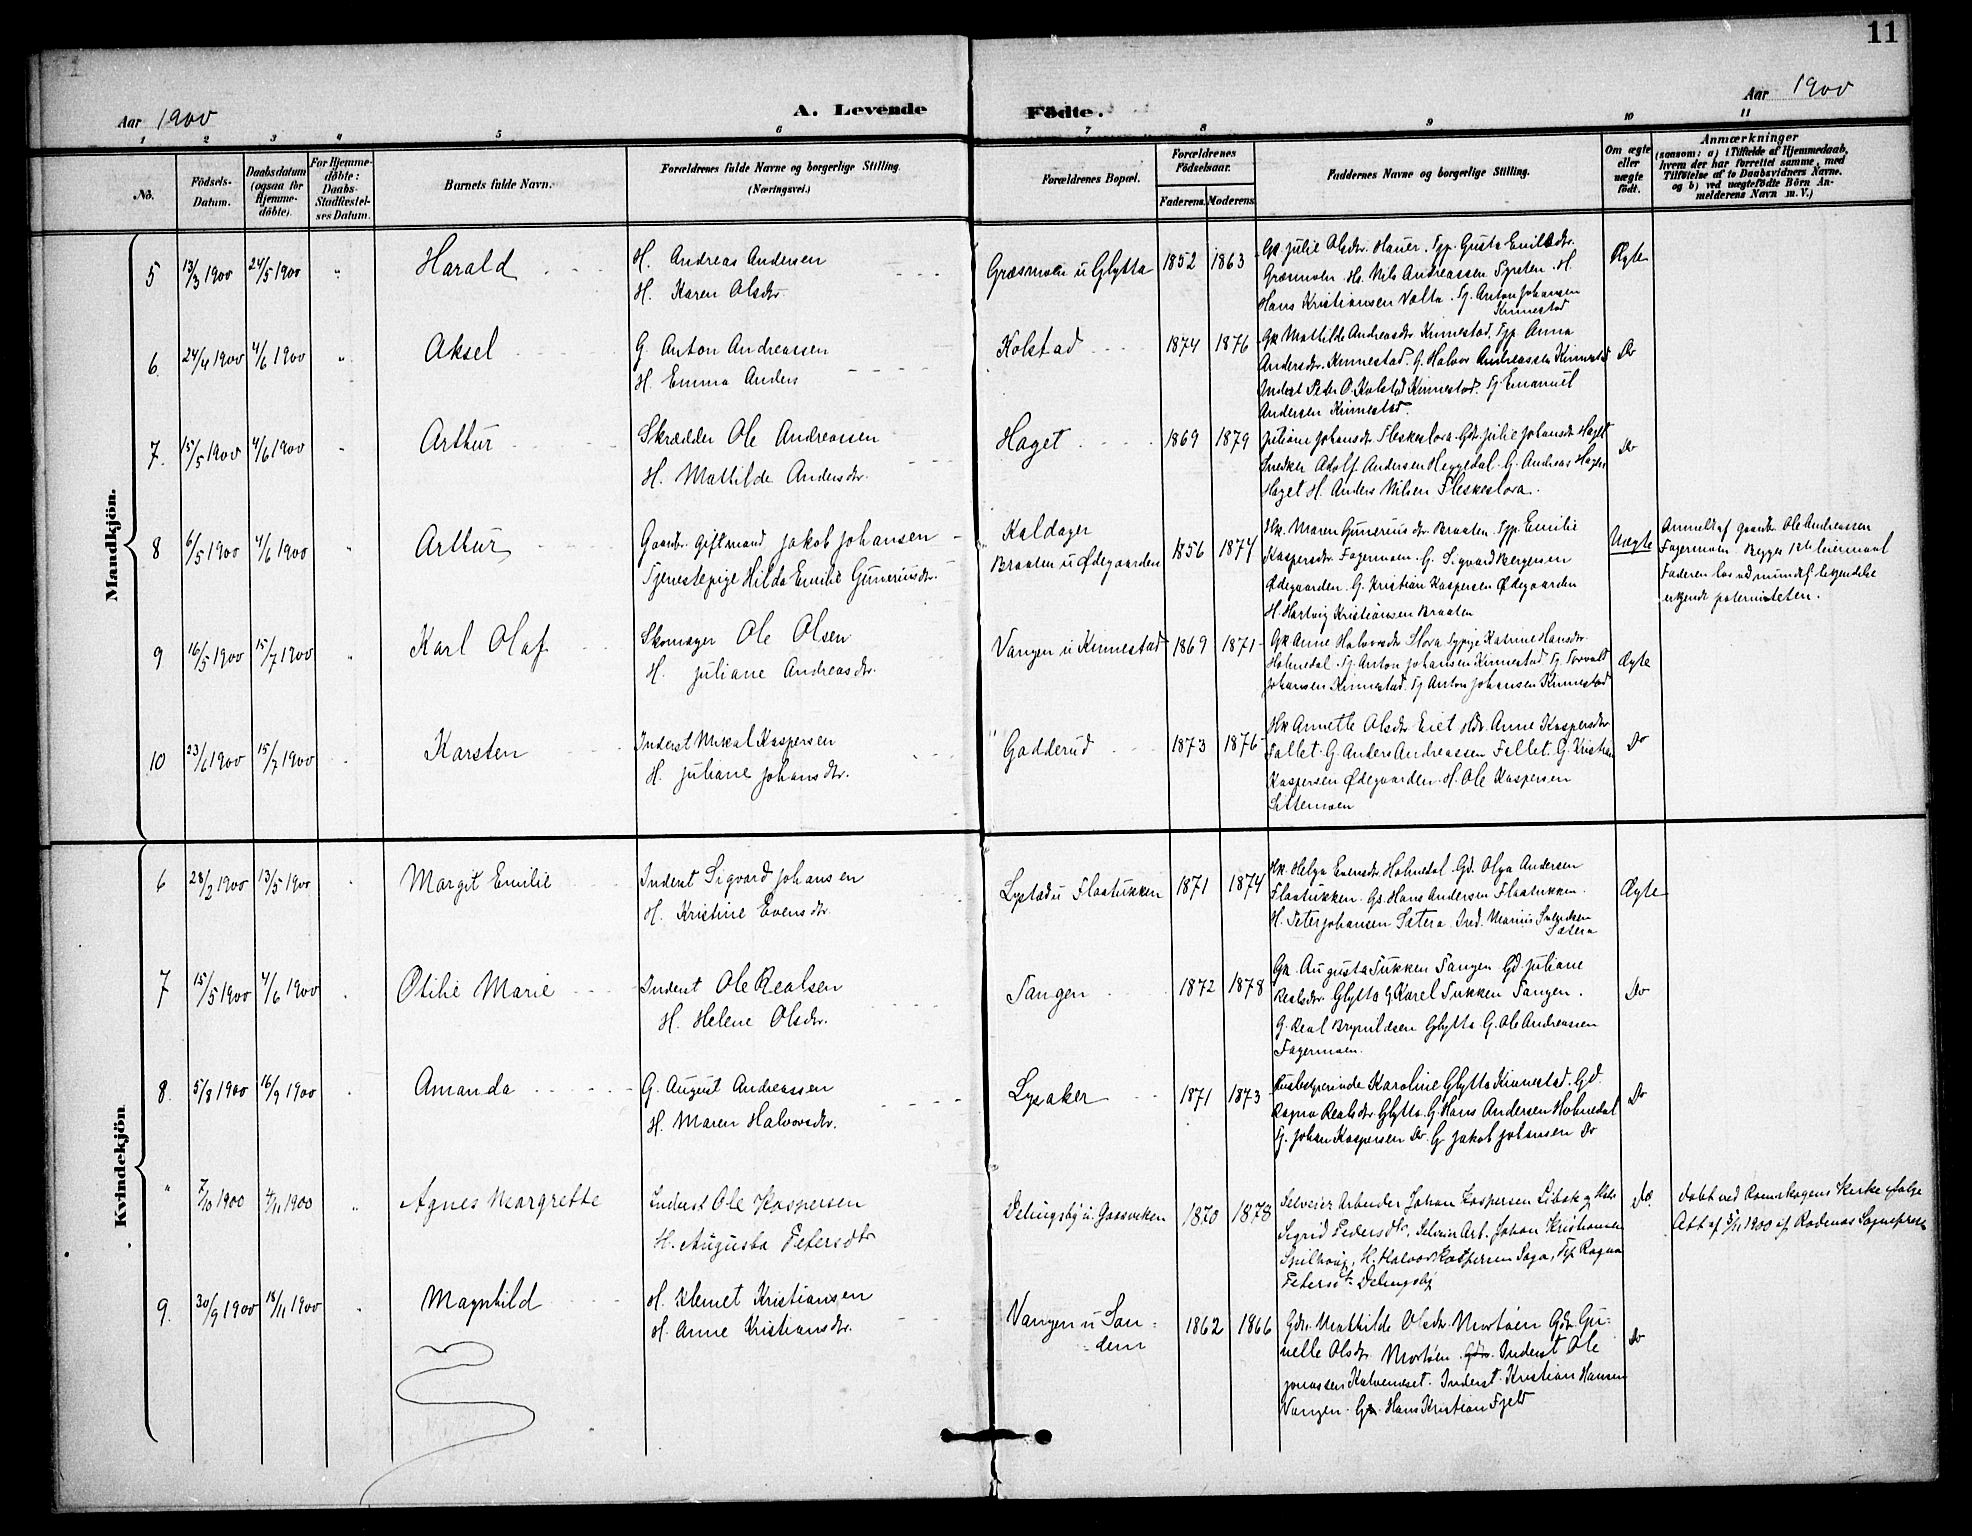 11
Aar 1900
A. Levende
Födte.
Aar 1900
1 2 3 4 5 6 7 8 9 10 11
No.
Födsels-
Datum.
Daabsdatum
(ogsaa for
Hjemme-
döbte).
For Hjemme-
döbte:
Daabs-
Stadfæstel-
ses Datum.
Barnets fulde Navn.
Forældrenes fulde Navne og borgerlige Stilling.
(Næringsvei.)
Forældrenes Bopæl.
Forældrenes
Födselsaar.
Faderens. Moderens.
Faddernes Navne og borgerlige Stilling.
Om ægte
eller
uægte
födt.
Anmærkninger
(saasom: a) i Tilfælde af Hjemmedaab,
hvem der har forrettet samme, med
Tilföielse af to Daabsvidners Navne,
og b) ved uægtefödte Börn An-
melderens Navn m. V.)
Mandkjön.
5 13/3 1900 24/5 1900 " Harald
H. Andreas Andersen
H. Karen Olsdtr.
Græsmoen u Glytta 1852 1863
Gk. Julie Olsdtr. Hauer. Tp. Gusta Emilsdtr.
Græsmoen. H. Nils Andreassen Tyreten. H.
Hans Kristiansen Volta. Tj. Anton Johansen
Kinnestad
Ægte
6. 24/4 1900 4/6 1900 " Aksel
G. Anton Andreassen
H. Emma Anders
Kolstad 1874 1876
Gk Mathilde Andreasdtr Kinnestad. Tp. Anna
Andersdtr. Kinnestad. G. Halvor Andreassen Kinnestad
Inderst Peder O. Kolstad Kinnestad. Tj. Emanuel
Andersen Kinnestad.
Do
7. 15/5 1900 4/6 1900 " Arthur
Skrædder Ole Andreassen
H. Mathilde Andersdtr.
Haget 1869 1879
Juliane Johansdtr. Fleskestora. Gdr. Julie Johansdtr Haget
Snedker Adolf Andersen Heggedal. G. Andreas
Haget H. Anders Nilsen Fleskestora.
Do
8 6/5 1900 4/6 1900 " Arthur
Gaardbr. giftmand Jakob Johansen
Tjenestepige Hilda Emilie Gunerius dtr.
Kaldager
Braaten u Ødegaarden 1856 1874
Hk. Maren Gunerius dtr. Braaten. Tp. Emilie
Kaspersdtr. Fagermoen. G. Sigvard Bergersen
Ødegaarden. G. Kristian Kaspersen Ødegaarden
H. Hartvig Kristiansen Braaten
Uægte
Anmeldt af gaardbr Ole Andreassen
Fagermoen. Begges 1ste leiermaal
Faderen las ved
erkjende paterniteten.
9 16/5 1900 15/7 1900 " Karl Olaf
Skomager Ole Olsen
H. Juliane Andreasdtr.
Vangen u Kinnestad 1869 1871
Gk Anne Halvorsdtr. Stora Tjpige Katrine Hansdtr.
Holmedal. Tj. Anton Johansen Kinnestad Tj. Torvald
Johansen Kinnestad. Tj Anton Johansen Kinnestad
Ægte
10 23/6 1900 15/7 1900 Karsten
Inderst Mikal Kaspersen
H. Juliane Johansdtr.
" Gadderud 1873 1876
Hk Annette Olsdtr. Eiet Anne Kaspersdtr
Fallet. G. Anders Andreassen Fallet. G. Kristian
Kaspersen Ødegaarden. H. Ole Kaspersen
Settemoen
Do
Kvindekjön
6 28/2 1900 13/5 1900 Margit Emilie
Inderst Sigvard Johansen
H. Kristine Evensdtr.
Lystad u Flaatukken 1871 1874
Hk. Helga Evensdtr Holmedal. Gd. Olga Andersen
Flaatukken. Gs. Hans Andersen Flaatukken.
H. Peter Johansen Sætera. Ind. Marius Svendsen
Sætera
Ægte
7 15/5 1900 4/6 1900 Otilie Marie
Inderst Ole Realsen
H. Helene Olsdtr.
Tangen 1872 1878
Gk. Augusta Tukken Tangen. Gd. Juliane
Realsdtr. Glytta G Karel Tukken Tangen.
G. Real Brynildsen Glytta. G. Ole Andreassen
Fagermoen.
Do
8. 5/8 1900 16/9 1900 Amanda
G. August Andreassen
H. Maren Halvorsdtr.
Lysaker 1871 1873
Husbestyrerinde Karoline Glytta Kinnestad. Gd.
Ragna Realsdtr. Glytta. G. Hans Andersen Holmedal
G. Johan Kaspersen Do. G. Jakob Johansen Do
Do
" 7/10 1900 4/11 1900 " Agnes Margrethe
Inderst Ole Kaspersen
H. Augusta Petersdtr
Delingsby u. Gaasviken 1870 1878
Selveier Arbeider Johan Kaspersen
Sigrid Pedersdtr, Selveier Arb. Johan Kristiansen
H. Halvor Kaspersen Daga, Tp Ragna
Petersdtr. Delingsby
Do.
Døbt ved Rømskogens Kirke ifølge
Att af 5/11 1900 af Rødenæs Sognepræst
9. 30/9 1900 18/11 1900 " Magnhild
H. Klemet Kristiansen
H. Anne Kristiansdtr.
Vangen u San-
dem 1862 1866
Gdr. Mathilde Olsdtr. Mortøen Gdr. Gu-
nelle Olsdtr Mortøen. Inderst Ole
Jonassen Kalveneset. Inderst. Kristian Hansen
Vangen. G. Hans Kristian Fjeld
Do